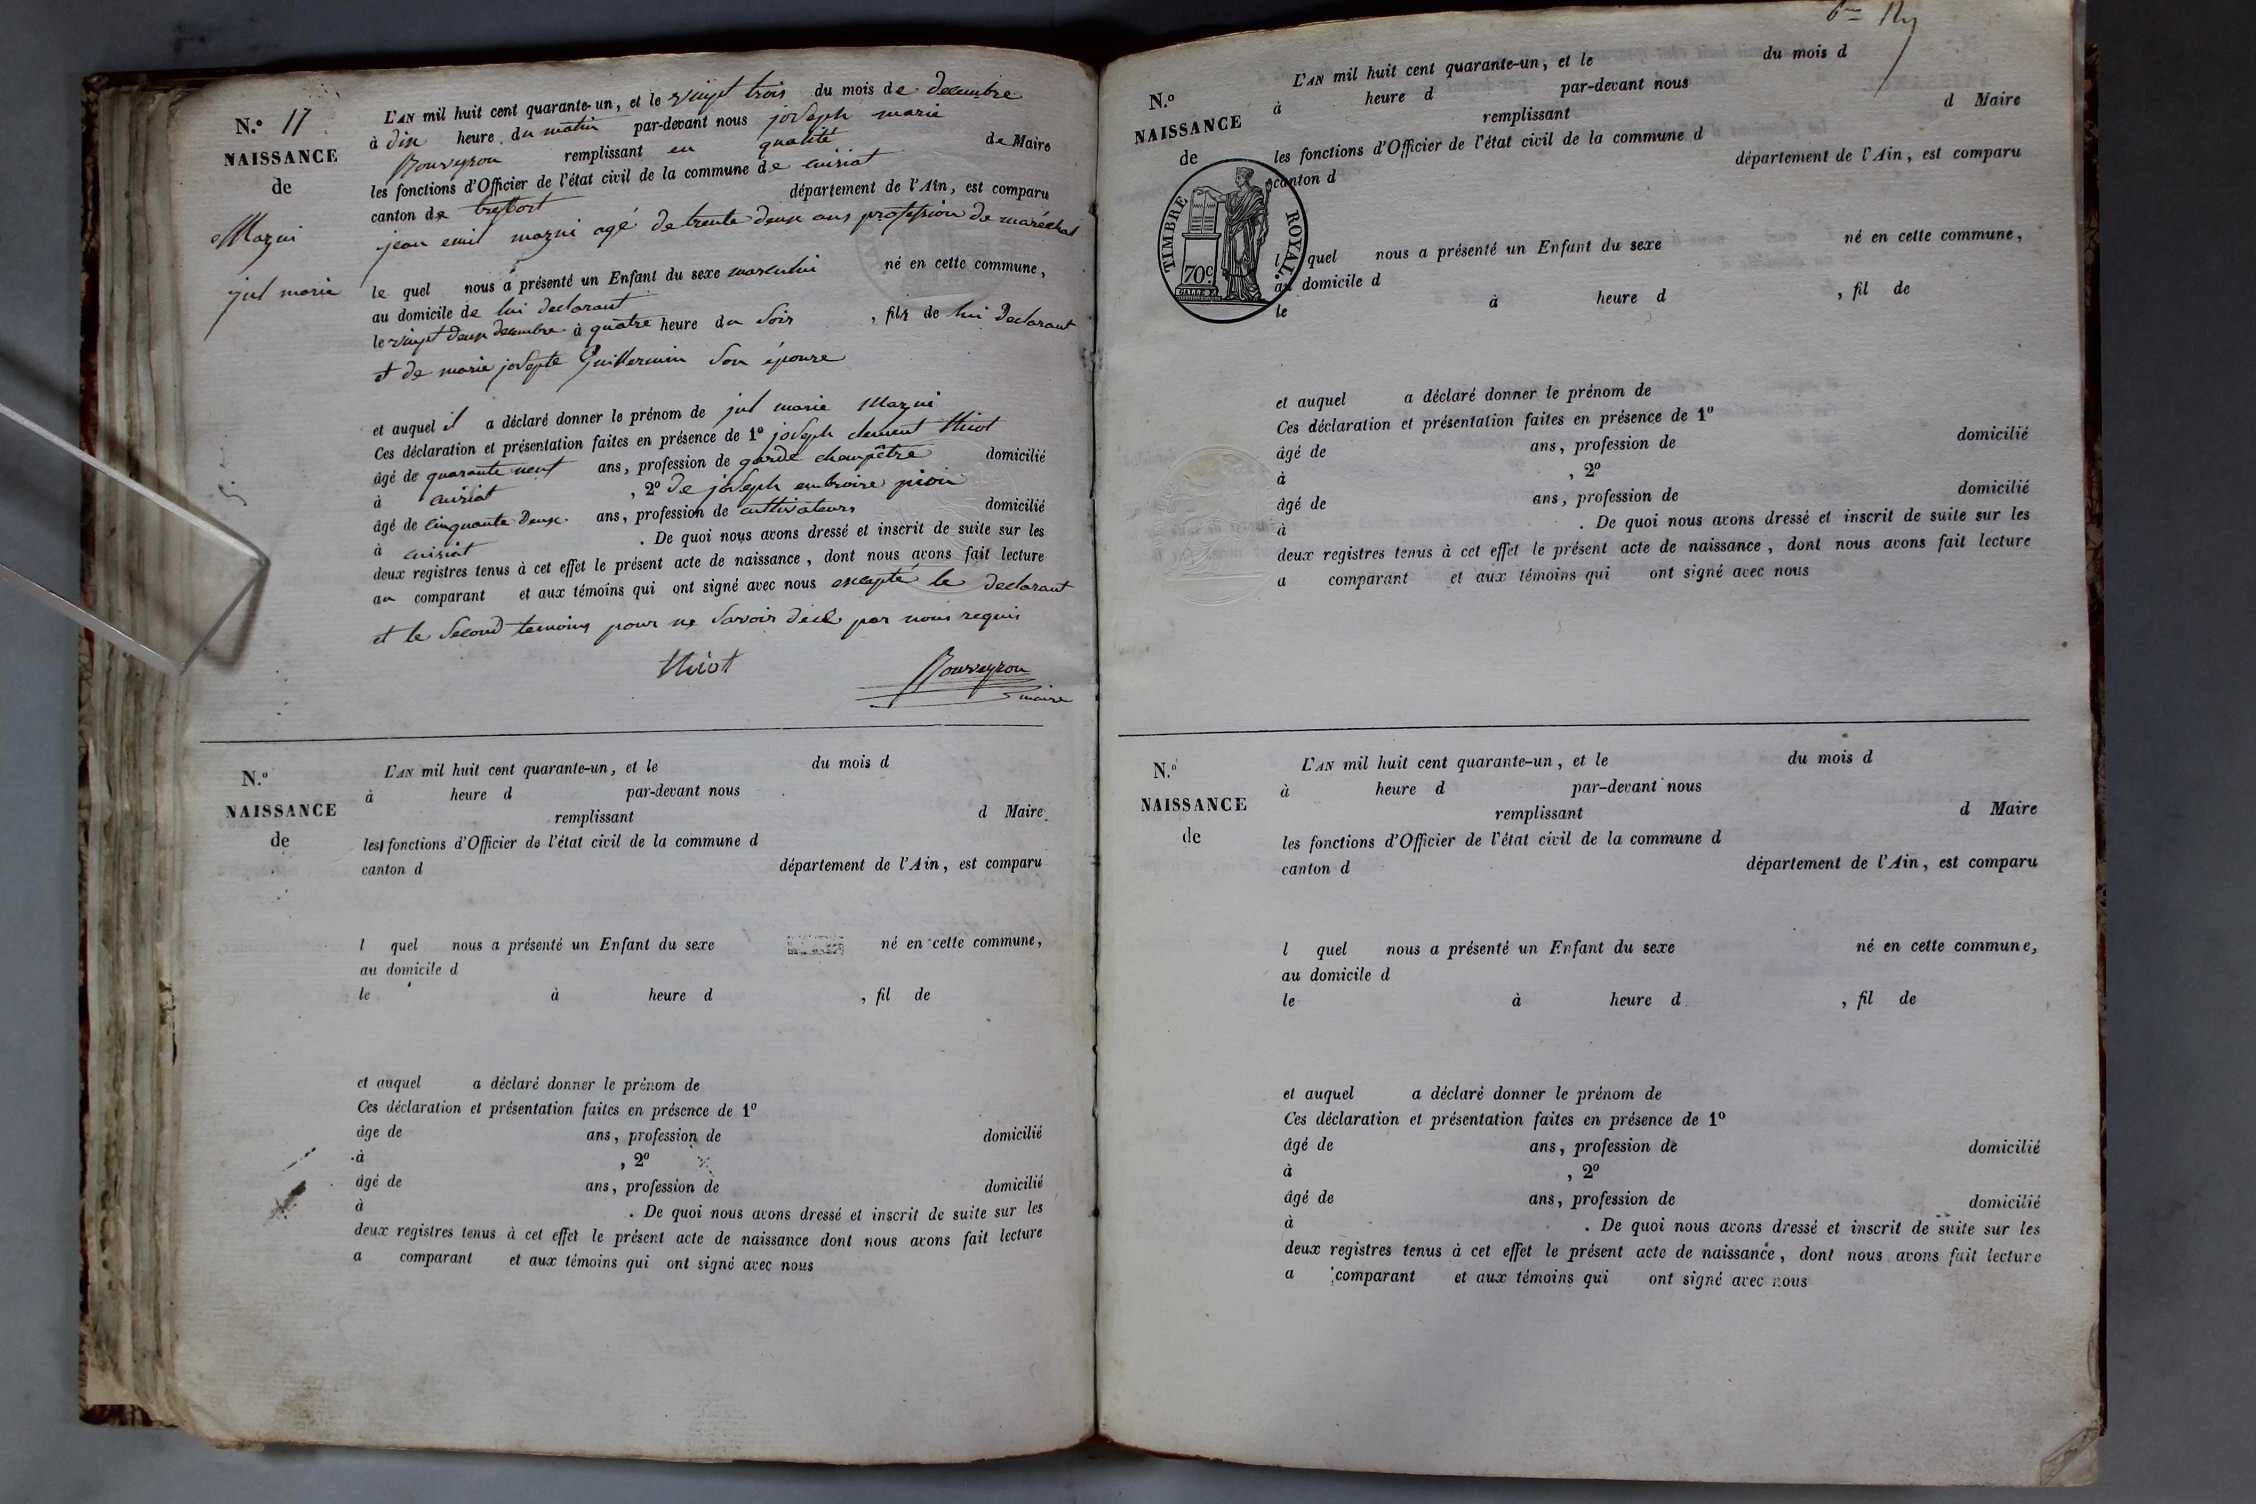 N.º 17
NAISSANCE
de
Mazui
jul marie
L'AN mil huit cent quarante-un, et le vingt trois du mois de decembre
à dix heure du matin par-devant nous joseph marie
Bouveyron remplissant en qualité de Maire
les fonctions d'Officier de l'état civil de la commune de cuisiat
canton de treffort département de l'Ain, est comparu
jean emil mazui agé de trente deux ans profession de maréchal
le quel nous a présenté un Enfant du sexe masculin né en cette commune,
au domicile de lui declarant
le vingt deux decembre à quatre heure du soir , fils de lui Declarant
et de marie josepte Guillermin son épouse
et auquel il a déclaré donner le prénom de jul marie Mazui
Ces déclaration et présentation faites en présence de 1º joseph clement thiot
âgé de quarante neuf ans, profession de garde champêtre domicilié
à cuisiat , 2º de joseph embroise pioin
âgé de cinquante deux ans, profession de cultivateurs domicilié
à cuisiat . De quoi nous avons dressé et inscrit de suite sur les
deux registres tenus à cet effet le présent acte de naissance, dont nous avons fait lecture
au comparant et aux témoins qui ont signé avec nous excepté le declarant
et le second temoins pour ne savoir de ce par nous requis
thiot Bouveyron
maire
N.º
NAISSANCE
de
L'AN mil huit cent quarante-un, et le du mois d
à heure d par-devant nous
remplissant d Maire
les fonctions d'Officier de l'état civil de la commune d
canton d département de l'Ain, est comparu
l quel nous a présenté un Enfant du sexe né en cette commune,
au domicile d
le à heure d , fil de
et auquel a déclaré donner le prénom de
Ces déclaration et présentation faites en présence de 1º
âge de ans, profession de domicilié
à , 2º
âgé de ans, profession de domicilié
à . De quoi nous avons dressé et inscrit de suite sur les
deux registres tenus à cet effet le présent acte de naissance dont nous avons fait lecture
a comparant et aux témoins qui ont signé avec nous
N.º
NAISSANCE
de
TIMBRE ROYAL.
70c
L'AN mil huit cent quarante-un, et le du mois d
à heure d par-devant nous
remplissant d Maire
les fonctions d'Officier de l'état civil de la commune d
canton d département de l'Ain, est comparu
l quel nous a présenté un Enfant du sexe né en cette commune,
au domicile d
le à heure d , fil de
et auquel a déclaré donner le prénom de
Ces déclaration et présentation faites en présence de 1º
âgé de ans, profession de domicilié
à , 2º
âgé de ans, profession de domicilié
à . De quoi nous avons dressé et inscrit de suite sur les
deux registres tenus à cet effet le présent acte de naissance, dont nous avons fait lecture
a comparant et aux témoins qui ont signé avec nous
N.º
NAISSANCE
de
L'AN mil huit cent quarante-un, et le du mois d
à heure d par-devant nous
remplissant d Maire
les fonctions d'Officier de l'état civil de la commune d
canton d département de l'Ain, est comparu
l quel nous a présenté un Enfant du sexe né en cette commune,
au domicile d
le à heure d , fil de
et auquel a déclaré donner le prénom de
Ces déclaration et présentation faites en présence de 1º
âgé de ans, profession de domicilié
à , 2º
âgé de ans, profession de domicilié
à . De quoi nous avons dressé et inscrit de suite sur les
deux registres tenus à cet effet le présent acte de naissance, dont nous avons fait lecture
a comparant et aux témoins qui ont signé avec nous